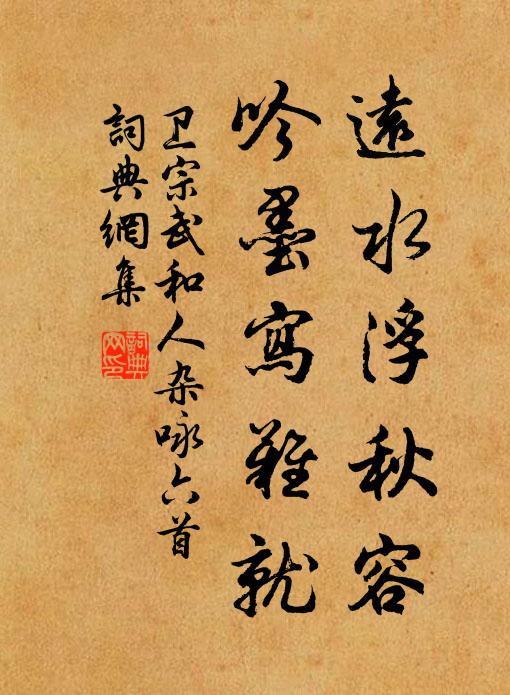 遠水浮秋容
吟墨寫難就
卫宗武和人杂咏六首
詞典網集
詞典网印